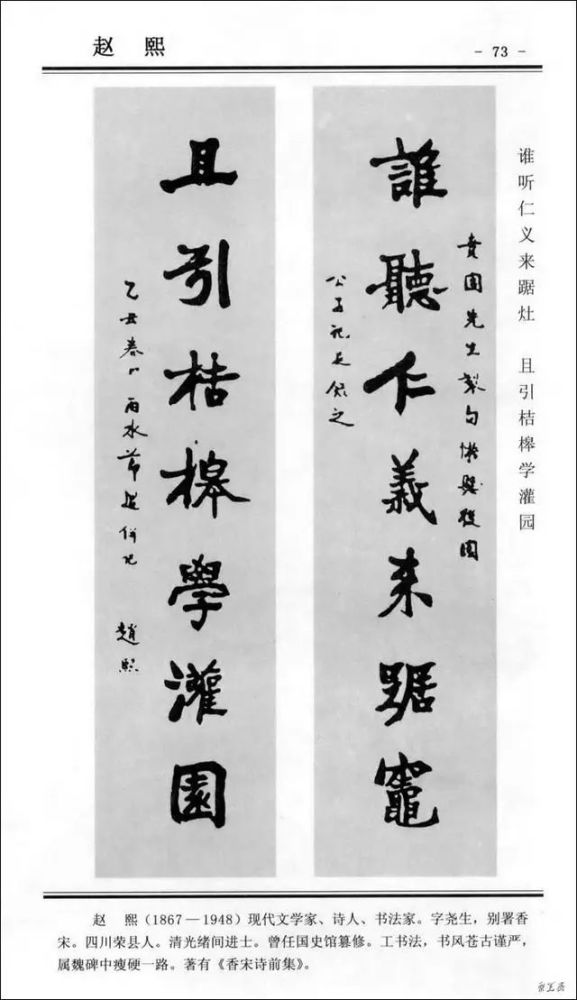 赵 熙
- 73 -
谁听仁义来踞灶 且引桔槔学灌园
誰聽仁義來踞竈
且引桔槔學灌園
賁園先生製句
公子祀
乙丑春
雨水節
趙熙
赵 熙（1867—1948）现代文学家、诗人、书法家。字尧生，别署香
宋。四川荣县人。清光绪间进士。曾任国史馆篡修。工书法，书风苍古谨严，
属魏碑中瘦硬一路。著有《香宋诗前集》。